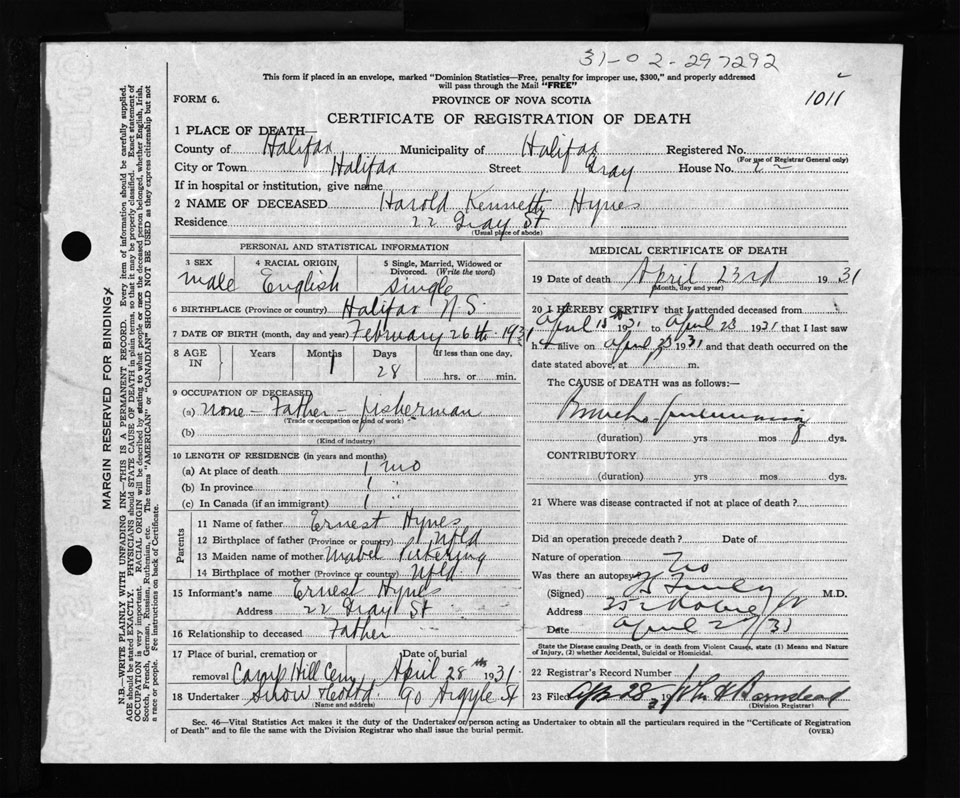 31-02-297292
This form if placed in an envelope, marked "Dominion Statistics—Free, penalty for improper use, $300," and properly addressed
will pass through the Mail "FREE"
1011
FORM 6.
PROVINCE OF NOVA SCOTIA
CERTIFICATE OF REGISTRATION OF DEATH
1 PLACE OF DEATH—
County of Halifax Municipality of Halifax Registered No.
(For use of Registrar General only)
City or Town Halifax Street Gray House No.
If in hospital or institution, give name
2 NAME OF DECEASED Harold Kenneth Hynes
Residence 22 Gray St
(Usual place of abode)
PERSONAL AND STATISTICAL INFORMATION
3 SEX male
4 RACIAL ORIGIN English
5 Single, Married, Widowed or Divorced. (Write the word) single
6 BIRTHPLACE (Province or country) Halifax N S
7 DATE OF BIRTH (month, day and year) February 26th 1931
8 AGE IN Years Months Days If less than one day,
1 28 hrs. or min.
9 OCCUPATION OF DECEASED
(a) none - Father - fisherman
(Trade or occupation or kind of work)
(b)
(Kind of industry)
10 LENGTH OF RESIDENCE (in years and months)
(a) At place of death 1 mo
(b) In province 1 "
(c) In Canada (if an immigrant) 1 "
Parents
11 Name of father Ernest Hynes
12 Birthplace of father (Province or country) Nfld
13 Maiden name of mother Mabel Pickering
14 Birthplace of mother (Province or country) Nfld
15 Informant's name Ernest Hynes
Address 22 Gray St
16 Relationship to deceased Father
17 Place of burial, cremation or removal Camp Hill Cem
Date of burial April 28th 1931
18 Undertaker Snow & Co Ltd 90 Argyle St
(Name and address)
MEDICAL CERTIFICATE OF DEATH
19 Date of death April 23rd 1931
(Month, day and year)
20 I HEREBY CERTIFY that I attended deceased from
April 15th 1931 to April 23 1931 that I last saw
h alive on April 23 1931 and that death occurred on the
date stated above, at m.
The CAUSE of DEATH was as follows:—
Broncho-pneumonia
(duration) yrs mos 8 dys.
CONTRIBUTORY
(duration) yrs mos dys.
21 Where was disease contracted if not at place of death?
Did an operation precede death? Date of
Nature of operation
Was there an autopsy No
(Signed) M.D.
Address
Date April 27/31
State the Disease causing Death, or in death from Violent Causes, state (1) Means and Nature
of Injury, (2) whether Accidental, Suicidal or Homicidal.
22 Registrar's Record Number
23 Filed Apr 28 1931 John H Barnstead
(Division Registrar)
Sec. 46—Vital Statistics Act makes it the duty of the Undertaker or person acting as Undertaker to obtain all the particulars required in the "Certificate of Registration
of Death" and to file the same with the Division Registrar who shall issue the burial permit.
(OVER)
MARGIN RESERVED FOR BINDING
N.B.—WRITE PLAINLY WITH UNFADING INK—THIS IS A PERMANENT RECORD. Every item of information should be carefully supplied.
AGE should be stated EXACTLY. PHYSICIANS should STATE CAUSE OF DEATH in plain terms, so that it may be properly classified. Exact statement of
OCCUPATION is very important. RACIAL ORIGIN will be described by stating to what people or race the deceased person belonged, whether English, Irish,
Scotch, French, German, Russian, Ruthenian, etc. The terms "AMERICAN" or "CANADIAN" SHOULD NOT BE USED as they express citizenship but not
a race or people. See instructions on back of Certificate.